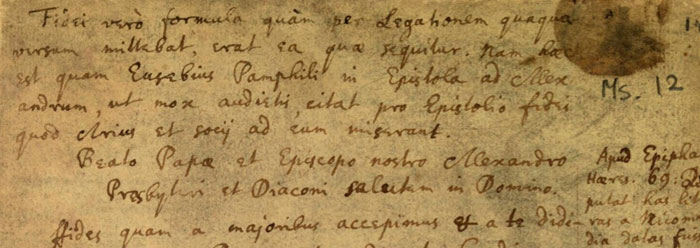 Fidei verò formula quàm per Legationem quaqua
versum mittebat, erat ea quæ sequitur. Nam hæc
est quam Eusebius Pamphili in Epistola ad Alex
andrum, ut mox audietis, citat pro Epistolio fidei
quod Arius et socij ad eum miserant.
Beato Papæ et Episcopo nostro Alexandro
Presbyteri et Diaconi salutem in Domino.
ffides quam a majoribus accepimus & a te didi
Ms. 12
Apud Epipha
Hæres. 69:
putat has lite
ras a Nicome
dia datas